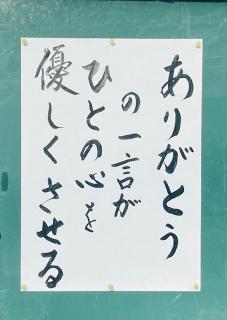 ありがとう
の一言が
ひとの心を
優しくさせる